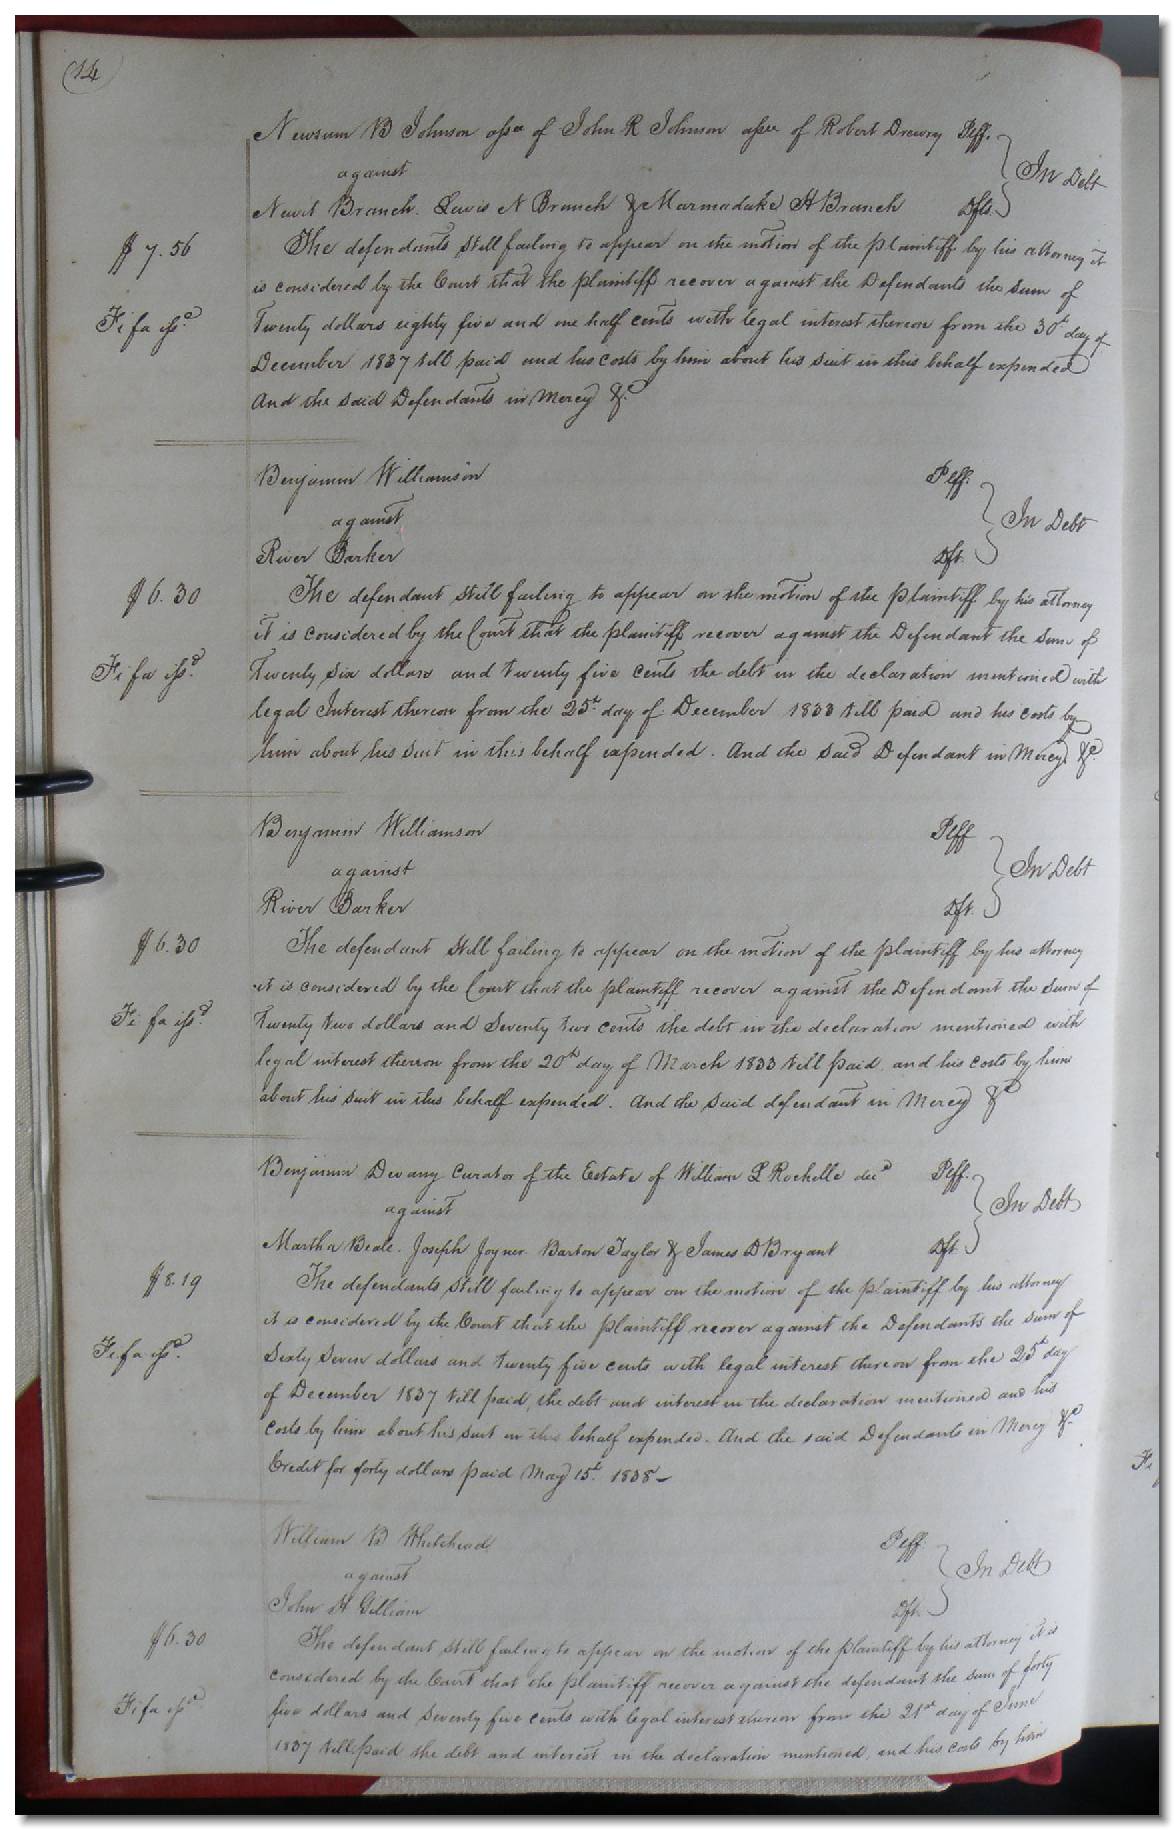 (14)
Newsum B Johnson assee of John R Johnson assee of Robert Drewry Plff.
against
In Debt
Newit Branch. Lewis N Branch & Marmaduke H Branch Dfts.
$7.56
The defendants still failing to appear on the motion of the plaintiff by his attorney it
is considered by the Court that the plaintiff recover against the Defendants the sum of
Fi fa issd.
Twenty dollars eighty five and one half cents with legal interest thereon from the 30th day of
December 1837 till paid and his costs by him about his suit in this behalf expended
And the said Defendants in Mercy &c
Benjamin Williamson Plff.
against
In Debt
River Barker Dft.
$6.30
The defendant still failing to appear on the motion of the plaintiff by his attorney
it is considered by the Court that the plaintiff recover against the Defendant the sum of
Fi fa issd.
Twenty six dollars and twenty five cents the debt in the declaration mentioned with
legal Interest thereon from the 25th day of December 1833 till paid and his costs by
him about his suit in this behalf expended. And the said Defendant in Mercy &c.
Benjamin Williamson Plff
against
In Debt
River Barker Dft.
$6.30
The defendant still failing to appear on the motion of the plaintiff by his attorney
it is considered by the Court that the plaintiff recover against the Defendant the sum of
Fi fa issd.
Twenty two dollars and Seventy two cents the debt in the declaration mentioned with
legal interest thereon from the 20th day of March 1833 till paid, and his costs by him
about his suit in this behalf expended. And the said defendant in Mercy &c
Benjamin Devany Curator of the Estate of William L Rochelle decd Plff.
against
In Debt
Martha Beale. Joseph Joyner. Barton Taylor & James D Bryant Dft
$8.19
The defendants still failing to appear on the motion of the plaintiff by his attorney
it is considered by the Court that the plaintiff recover against the Defendants the sum of
Fi fa issd.
Sixty Seven dollars and twenty five cents with legal interest thereon from the 25th day
of December 1837 till paid, the debt and interest in the declaration mentioned and his
costs by him about his suit in this behalf expended. And the said Defendants in Mercy &c.
Credit for forty dollars paid May 15th. 1838-
William B Whitehead Plff.
against
In Debt
John H Gilliam Dft.
$6.30
The defendant still failing to appear on the motion of the plaintiff by his attorney it is
considered by the Court that the plaintiff recover against the defendant the sum of forty
Fi fa issd
five dollars and Seventy five cents with legal interest thereon from the 21st day of June
1837 till paid the debt and interest in the declaration mentioned, and his costs by him
Fi